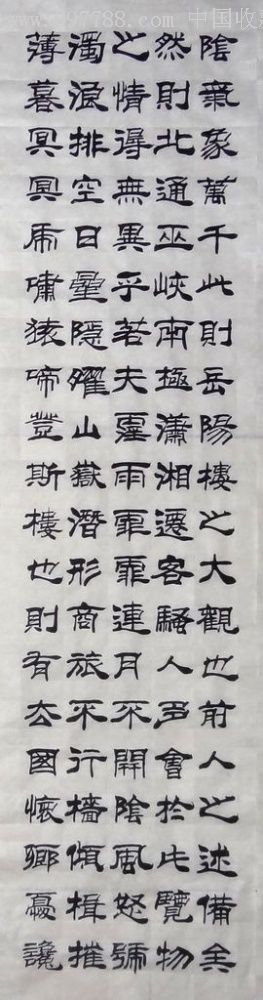 陰氣象萬千此則岳陽樓之大觀也前人之述備矣
然則北通巫峽南極瀟湘遷客騷人多會於此覽物
之情得無異乎若夫霪雨霏霏連月不開陰風怒號
濁浪排空日星隱曜山嶽潛形商旅不行檣傾楫摧
薄暮冥冥虎嘯猿啼登斯樓也則有去國懷鄉憂讒
97788.com 中国收